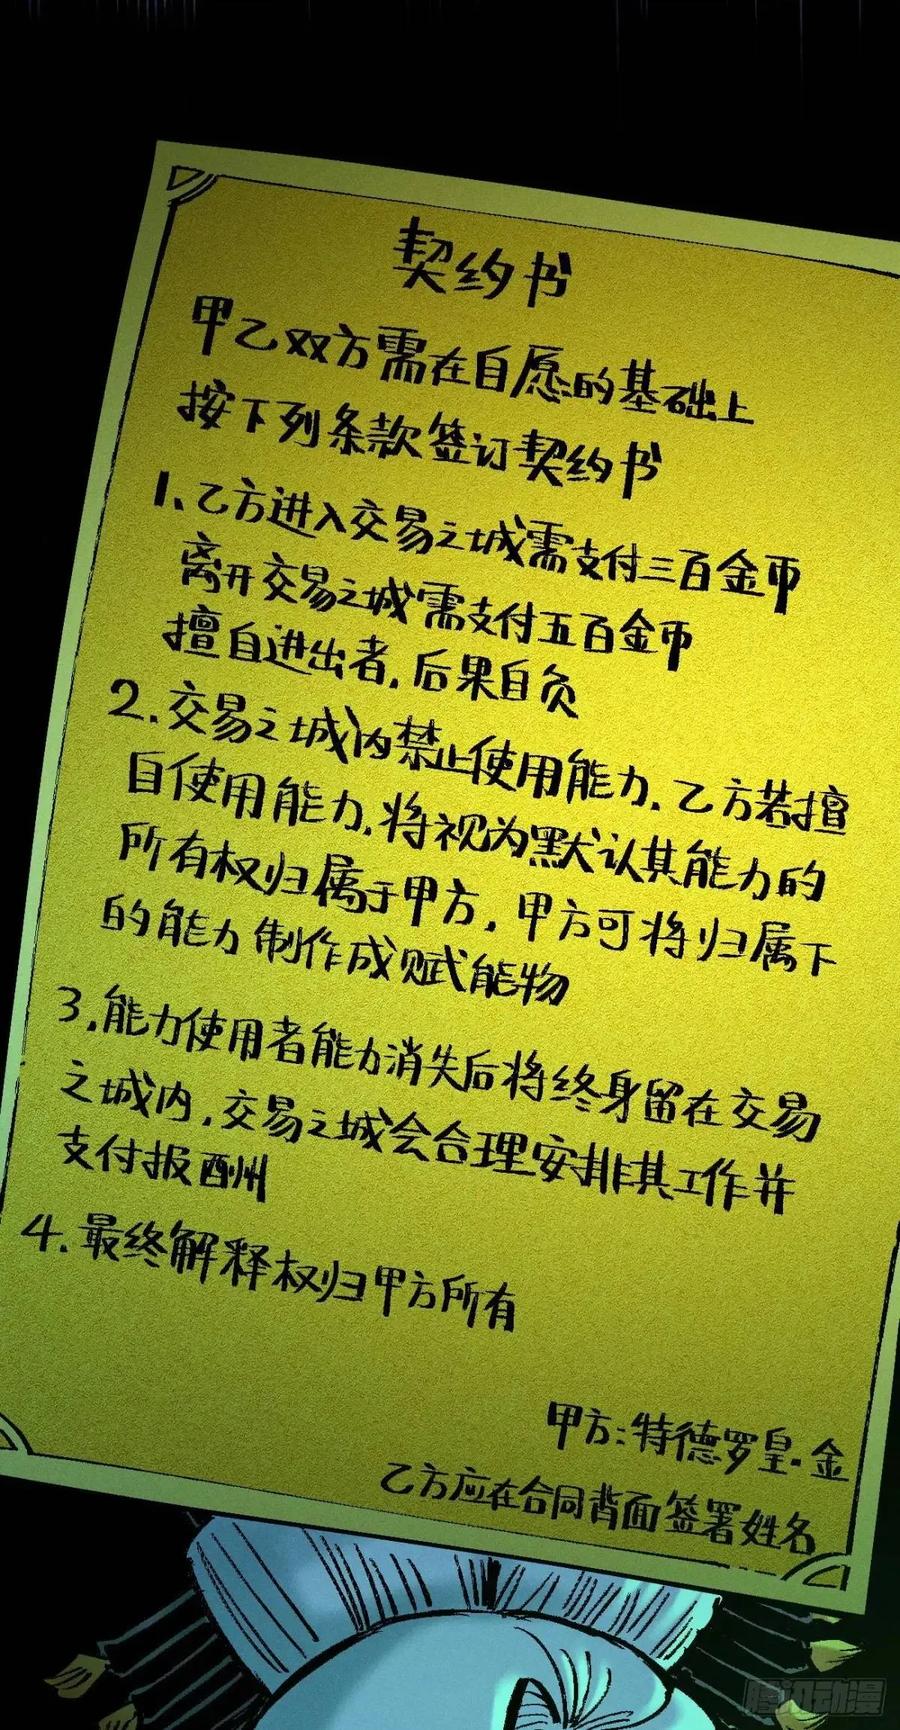 契约书
甲乙双方需在自愿的基础上
按下列条款签订契约书
1、乙方进入交易之城需支付三百金币
离开交易之城需支付五百金币
擅自进出者，后果自负
2.交易之城内禁止使用能力.乙方若擅
自使用能力,将视为默认其能力的
所有权归属于甲方，甲方可将归属下
的能力制作成赋能物
3,能力使用者能力消失后将终身留在交易
之城内,交易之城会合理安排其工作并
支付报酬州
4.最终解释权归甲方所有
甲方:特德罗皇.金
乙方应在合同背面签署姓名
腾讯动漫